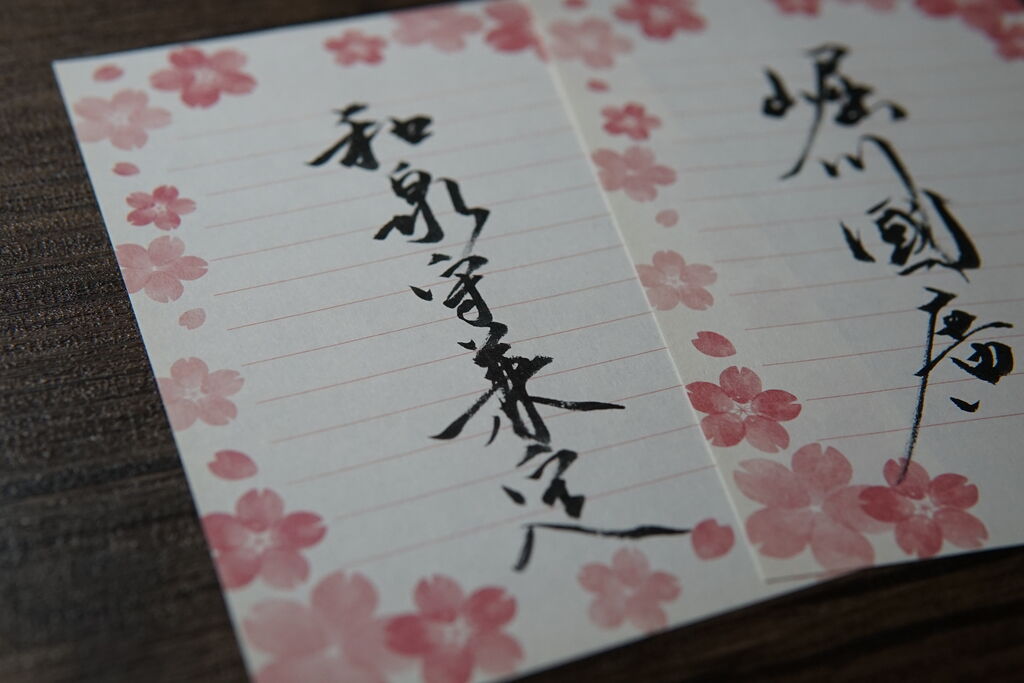 堀川國廣
和泉守兼定